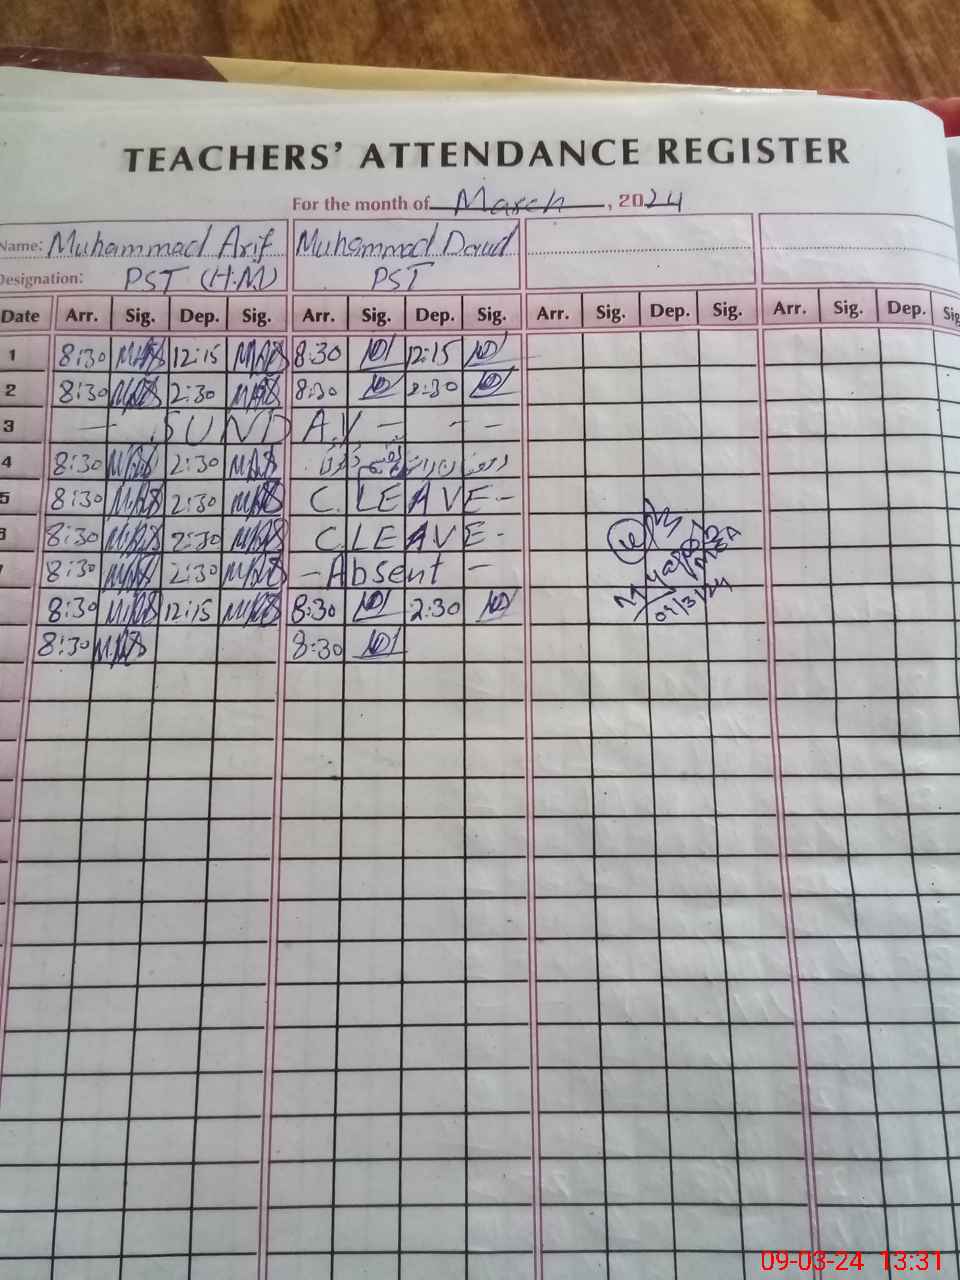 TEACHERS' ATTENDANCE REGISTER
For the month of March, 2024
Name: Muhammad Arif Muhammad Daud
Designation: PST (H.M) PST
Date Arr. Sig. Dep. Sig. Arr. Sig. Dep. Sig. Arr. Sig. Dep. Sig. Arr. Sig. Dep. Sig.
1 8:30 12:15 8:30 12:15
2 8:30 2:30 8:30 2:30
3 — SUNDAY — - -
4 8:30 2:30
5 8:30 2:30 C. LEAVE -
6 8:30 2:30 C. LEAVE -
8:30 2:30 - Absent -
8:30 12:15 8:30 2:30
8:30 8:30
MEA
09/3/24
09-03-24 13:31